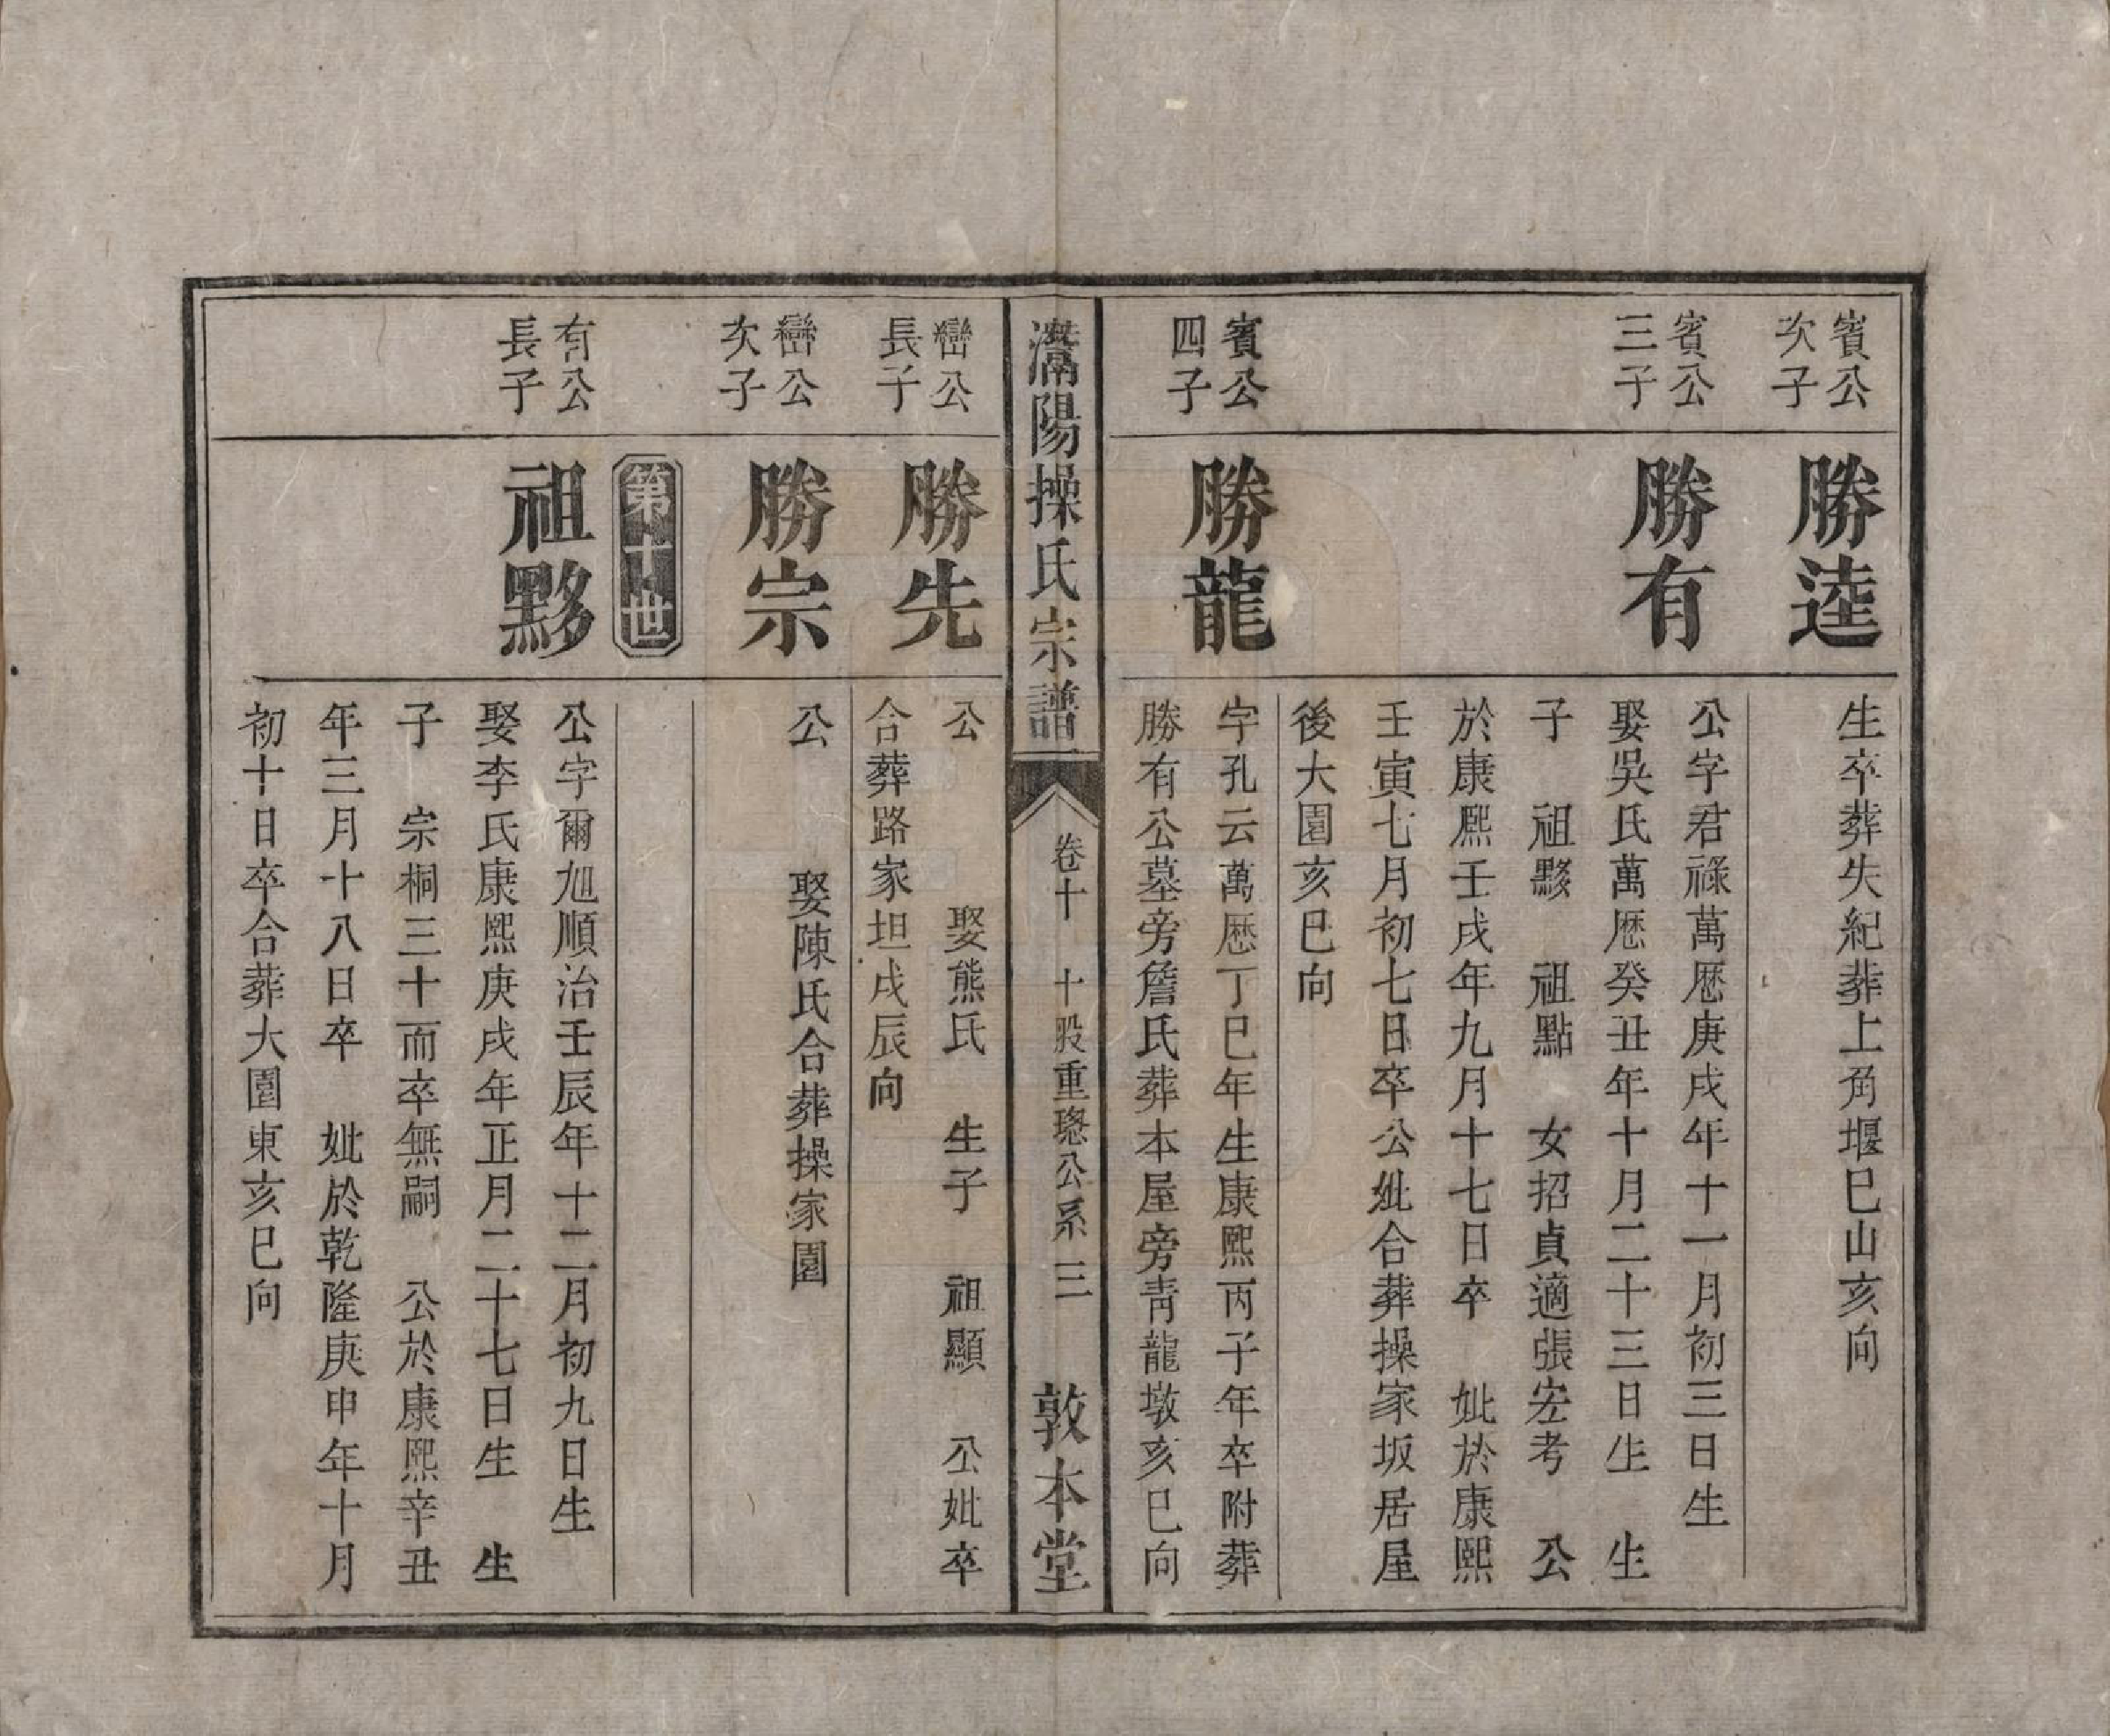 賓公
次子
勝逵
生卒葬失紀葬上角堰巳山亥向
賓公
三子
勝有
公字君祿萬歷庚戌年十一月初三日生
娶吳氏萬歷癸丑年十月二十三日生　生
子　祖黟　祖點　女招貞適張宏考　公
於康熈壬戌年九月十七日卒　妣於康熙
壬寅七月初七日卒公妣合葬操家坂居屋
後大園亥巳向
賓公
四子
勝龍
字孔云萬歷丁巳年生康熙丙子年卒附葬
勝有公墓旁詹氏葬本屋旁靑龍墩亥巳向
灊陽操氏宗譜
卷十　十股重璁公系　三
敦本堂
巒公
長子
勝先
公　　　娶熊氏　生子　祖顯　公妣卒
合葬路家坦戌辰向
巒公
次子
勝宗
公　　娶陳氏合葬操家園
第十世
有公
長子
祖黟
公字爾旭順治壬辰年十二月初九日生
娶李氏康熙庚戌年正月二十七日生　生
子　宗桐三十而卒無嗣　公於康熙辛丑
年三月十八日卒　妣於乾隆庚申年十月
初十日卒合葬大園東亥巳向